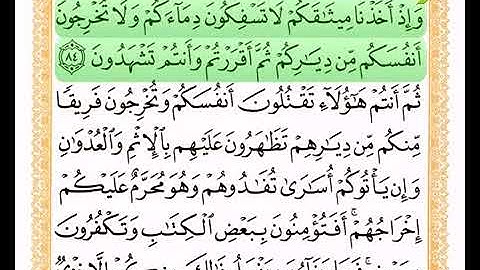 وَإِذْ أَخَذْنَا مِيثَٰقَكُمْ لَا تَسْفِكُونَ دِمَآءَكُمْ وَلَا تُخْرِجُونَ
أَنفُسَكُم مِّن دِيَٰرِكُمْ ثُمَّ أَقْرَرْتُمْ وَأَنتُمْ تَشْهَدُونَ ٨٤
ثُمَّ أَنتُمْ هَٰٓؤُلَآءِ تَقْتُلُونَ أَنفُسَكُمْ وَتُخْرِجُونَ فَرِيقًا
مِّنكُم مِّن دِيَٰرِهِمْ تَظَٰهَرُونَ عَلَيْهِم بِٱلْإِثْمِ وَٱلْعُدْوَٰنِ
وَإِن يَأْتُوكُمْ أُسَٰرَىٰ تُفَٰدُوهُمْ وَهُوَ مُحَرَّمٌ عَلَيْكُمْ
إِخْرَاجُهُمْ ۚ أَفَتُؤْمِنُونَ بِبَعْضِ ٱلْكِتَٰبِ وَتَكْفُرُونَ